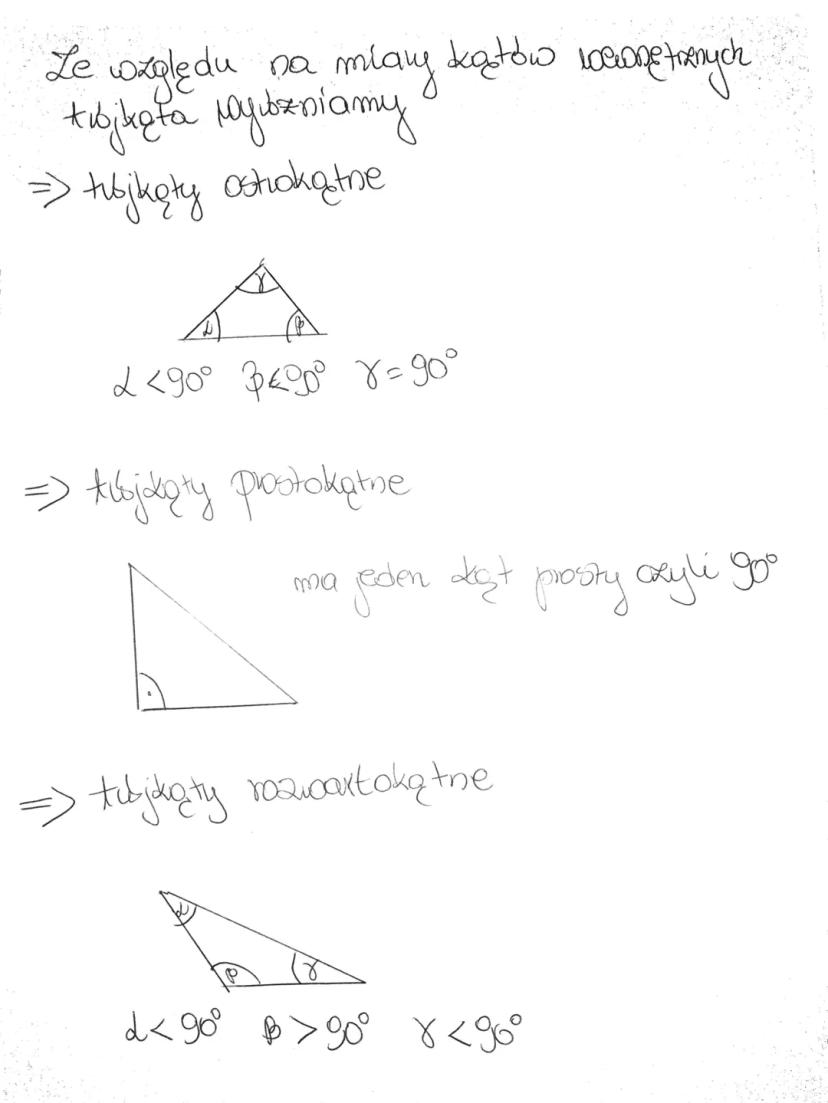 Ze względu na miary kątów wewnętrznych
trójkąta wyróżniamy
=> trójkąty ostrokątne
γ
α β
α < 90° β < 90° γ = 90°
=> trójkąty prostokątne
ma jeden kąt prosty czyli 90°
=> trójkąty rozwartokątne
α
β γ
α < 90° β > 90° γ < 90°